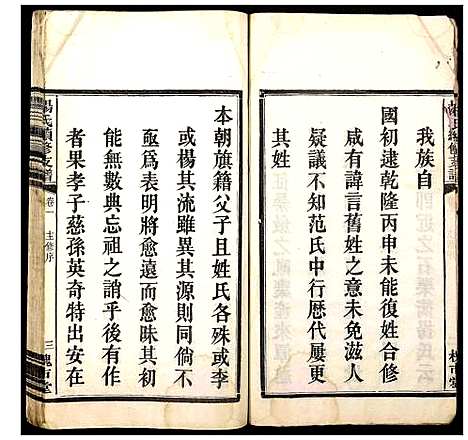 我族自
國初逮乾隆丙申未能復姓合修
咸有諱言舊姓之意未免滋人
疑議不知范氏中行歷代屢更
其姓
本朝旗籍父子且姓氏各殊或李
或楊其流雖異其源則同倘不
亟為表明將愈遠而愈昧其初
能無數典忘祖之誚乎後有作
者果孝子慈孫英奇特出安在
楊氏續修支譜
卷一
主修序
三
槐市堂